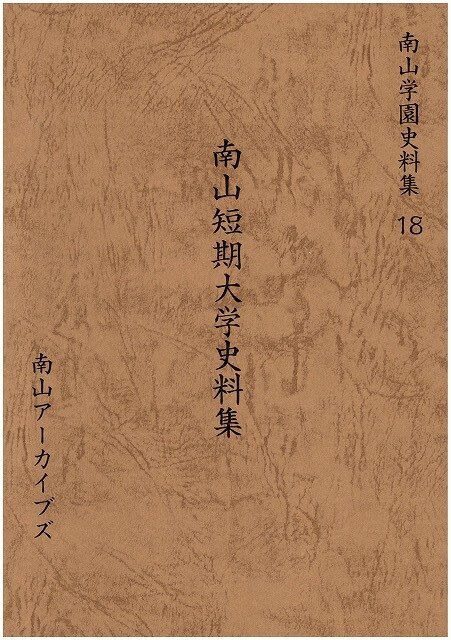 南山学園史料集 18
南山短期大学史料集
南山アーカイブズ